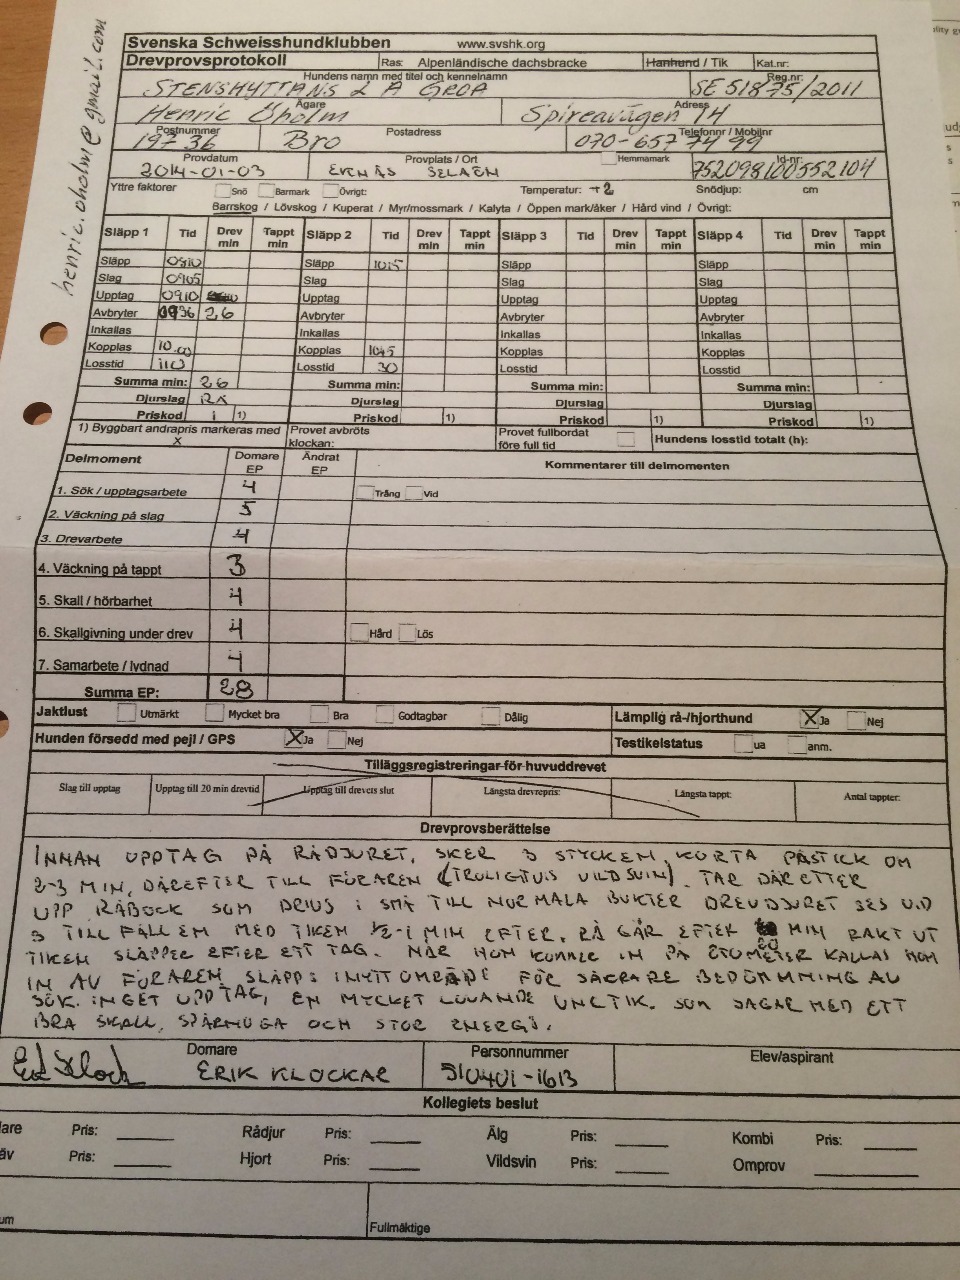 henric.oholm@gmail.com
Svenska Schweisshundklubben www.svshk.org
Drevprovsprotokoll Ras: Alpenländische dachsbracke Hanhund / Tik Kat.nr:
Hundens namn med titel och kennelnamn Reg.nr:
STENSHYTTANS L A GROA SE 51875/2011
Ägare Adress
Henric Öholm Spireavägen 14
Postnummer Postadress Telefonnr / Mobilnr
197 36 Bro 070-657 74 99
Provdatum Provplats / Ort Hemmamark Id-nr:
2014-01-03 EKNÄS SELAÖN 752098100552104
Yttre faktorer Snö Barmark Övrigt: Temperatur: +2 Snödjup: cm
Barrskog / Lövskog / Kuperat / Myr/mossmark / Kalyta / Öppen mark/åker / Hård vind / Övrigt:
Släpp 1 Tid Drev min Tappt min Släpp 2 Tid Drev min Tappt min Släpp 3 Tid Drev min Tappt min Släpp 4 Tid Drev min Tappt min
Släpp Släpp 1015 Släpp Släpp
Slag 0905 Slag Slag Slag
Upptag 0910 Upptag Upptag Upptag
Avbryter 0936 26 Avbryter Avbryter Avbryter
Inkallas Inkallas Inkallas Inkallas
Kopplas 10.00 Kopplas 1045 Kopplas Kopplas
Losstid 110 Losstid 30 Losstid Losstid
Summa min: 26 Summa min: Summa min: Summa min:
Djurslag RX Djurslag Djurslag Djurslag
Priskod 1 1) Priskod 1) Priskod 1) Priskod 1)
1) Byggbart andrapris markeras med X Provet avbröts klockan: Provet fullbordat före full tid Hundens losstid totalt (h):
Delmoment Domare EP Ändrat EP Kommentarer till delmomenten
1. Sök / upptagsarbete 4 Trång Vid
2. Väckning på slag 5
3. Drevarbete 4
4. Väckning på tappt 3
5. Skall / hörbarhet 4
6. Skallgivning under drev 4 Hård Lös
7. Samarbete / lydnad 4
Summa EP: 28
Jaktlust Utmärkt Mycket bra Bra Godtagbar Dålig Lämplig rå-/hjorthund X Ja Nej
Hunden försedd med pejl / GPS X Ja Nej Testikelstatus ua anm.
Tilläggsregistreringar för huvuddrevet
Slag till upptag Upptag till 20 min drevtid Upptag till drevets slut Längsta drevrepris: Längsta tappt: Antal tappter:
Drevprovsberättelse
INNAN UPPTAG PÅ RÅDJURET, SKER 3 STYCKEN KORTA PÅSTICK OM
2-3 MIN, DÄREFTER TILL FÖRAREN (TROLIGTVIS VILDSVIN). TAR DÄREFTER
UPP RÅBOCK SOM DRIVS I SMÅ TILL NORMALA BUKTER DREVDJURET SES VID
3 TILLFÄLLEN MED TIKEN 1/2-1 MIN EFTER. RÅ GÅR EFTER 20 MIN RAKT UT
TIKEN SLÄPPER EFTER ETT TAG. NÄR HON KOMMER IN PÅ KALLAS HON
IN AV FÖRAREN. SLÄPPS I NYTT OMRÅDE FÖR SÄKRARE BEDÖMNING AV
SÖK. INGET UPPTAG, EN MYCKET LOVANDE UNGTIK. SOM JAGAR MED ETT
BRA SKALL, SPÅRNOGA OCH STOR ENERGI.
Domare Personnummer Elev/aspirant
ERIK KLOCKAR 510401-1613
Kollegiets beslut
are Pris: Rådjur Pris: Älg Pris: Kombi Pris:
äv Pris: Hjort Pris: Vildsvin Pris: Omprov
um Fullmäktige